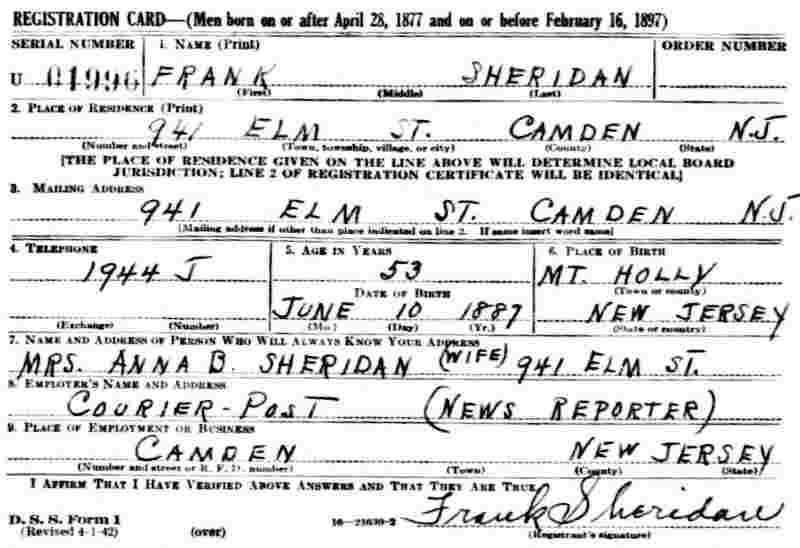 REGISTRATION CARD—(Men born on or after April 28, 1877 and on or before February 16, 1897)
SERIAL NUMBER 1. NAME (Print) ORDER NUMBER
U 01996 FRANK SHERIDAN
(First) (Middle) (Last)
2. PLACE OF RESIDENCE (Print)
941 ELM ST. CAMDEN N.J.
(Number and street) (Town, township, village, or city) (County) (State)
[THE PLACE OF RESIDENCE GIVEN ON THE LINE ABOVE WILL DETERMINE LOCAL BOARD
JURISDICTION; LINE 2 OF REGISTRATION CERTIFICATE WILL BE IDENTICAL]
3. MAILING ADDRESS
941 ELM ST. CAMDEN N.J.
[Mailing address if other than place indicated on line 2. If same insert word same]
4. TELEPHONE 5. AGE IN YEARS 6. PLACE OF BIRTH
1944 J 53 MT. HOLLY
DATE OF BIRTH (Town or county)
JUNE 10 1887 NEW JERSEY
(Exchange) (Number) (Mo.) (Day) (Yr.) (State or country)
7. NAME AND ADDRESS OF PERSON WHO WILL ALWAYS KNOW YOUR ADDRESS
MRS. ANNA B. SHERIDAN (WIFE) 941 ELM ST.
8. EMPLOYER'S NAME AND ADDRESS
COURIER-POST (NEWS REPORTER)
9. PLACE OF EMPLOYMENT OR BUSINESS
CAMDEN NEW JERSEY
(Number and street or R. F. D. number) (Town) (County) (State)
I AFFIRM THAT I HAVE VERIFIED ABOVE ANSWERS AND THAT THEY ARE TRUE.
Frank Sheridan
D. S. S. Form 1 (Registrant's signature)
(Revised 4-1-42) (over) 16—21630-2